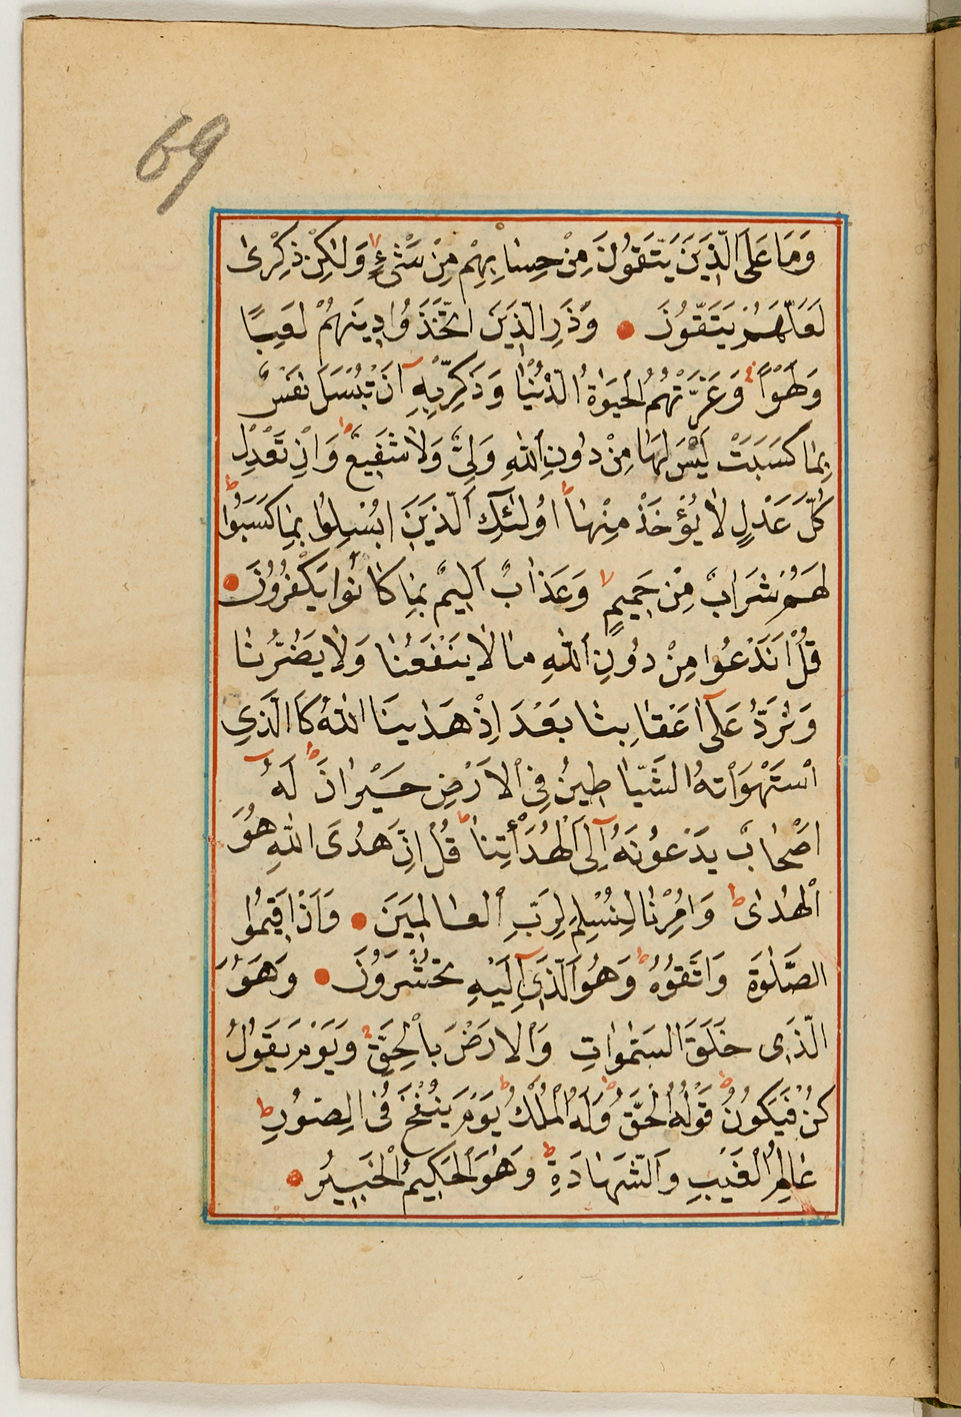 69
وَمَا عَلَى الَّذِينَ يَتَّقُونَ مِنْ حِسَابِهِمْ مِنْ شَىْءٍ وَلٰكِنْ ذِكْرٰى
لَعَلَّهُمْ يَتَّقُونَ وَذَرِ الَّذِينَ اتَّخَذُوا دِينَهُمْ لَعِبًا
وَلَهْوًا وَغَرَّتْهُمُ الْحَيٰوةُ الدُّنْيَا وَذَكِّرْ بِهِ اَنْ تُبْسَلَ نَفْسٌ
بِمَا كَسَبَتْ لَيْسَ لَهَا مِنْ دُونِ اللهِ وَلِىٌّ وَلَا شَفِيعٌ وَاِنْ تَعْدِلْ
كُلَّ عَدْلٍ لَا يُؤْخَذْ مِنْهَا اُولٰئِكَ الَّذِينَ اُبْسِلُوا بِمَا كَسَبُوا
لَهُمْ شَرَابٌ مِنْ حَمِيمٍ وَعَذَابٌ اَلِيمٌ بِمَا كَانُوا يَكْفُرُونَ
قُلْ اَنَدْعُوا مِنْ دُونِ اللهِ مَا لَا يَنْفَعُنَا وَلَا يَضُرُّنَا
وَنُرَدُّ عَلٰى اَعْقَابِنَا بَعْدَ اِذْ هَدٰينَا اللهُ كَالَّذِى
اسْتَهْوَاتْهُ الشَّيَاطِينُ فِى الْاَرْضِ حَيْرَانَ لَهُ
اَصْحَابٌ يَدْعُونَهُ اِلَى الْهُدَأْتِنَا قُلْ اِنَّ هُدَى اللهِ هُوَ
الْهُدٰى وَاُمِرْنَا لِنُسْلِمَ لِرَبِّ الْعَالَمِينَ وَاَنْ اَقِيمُوا
الصَّلٰوةَ وَاتَّقُوهُ وَهُوَ الَّذِى اِلَيْهِ تُحْشَرُونَ وَهُوَ
الَّذِى خَلَقَ السَّمٰوَاتِ وَالْاَرْضَ بِالْحَقِّ وَيَوْمَ يَقُولُ
كُنْ فَيَكُونُ قَوْلُهُ الْحَقُّ وَلَهُ الْمُلْكُ يَوْمَ يُنْفَخُ فِى الصُّورِ
عَالِمُ الْغَيْبِ وَالشَّهَادَةِ وَهُوَ الْحَكِيمُ الْخَبِيرُ